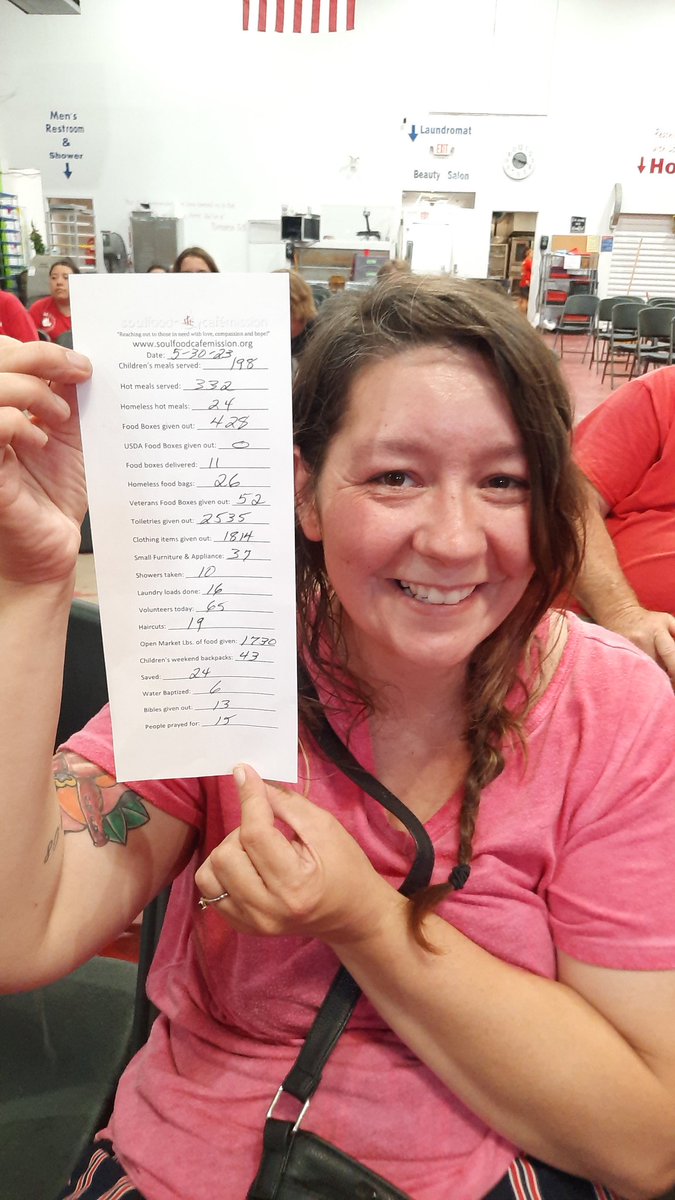 Men's
Restroom
&
Shower
Laundromat
EXIT
Beauty Salon
Ho
soulfood cafemission
"Reaching out to those in need with love, compassion and hope!"
www.soulfoodcafemission.org
Date: 5-30-23
Children's meals served: 198
Hot meals served: 332
Homeless hot meals: 24
Food Boxes given out: 428
USDA Food Boxes given out: 0
Food boxes delivered: 11
Homeless food bags: 26
Veterans Food Boxes given out: 52
Toiletries given out: 2535
Clothing items given out: 1814
Small Furniture & Appliance: 37
Showers taken: 10
Laundry loads done: 16
Volunteers today: 65
Haircuts: 19
Open Market Lbs. of food given: 1730
Children's weekend backpacks: 43
Saved: 24
Water Baptized: 6
Bibles given out: 13
People prayed for: 15